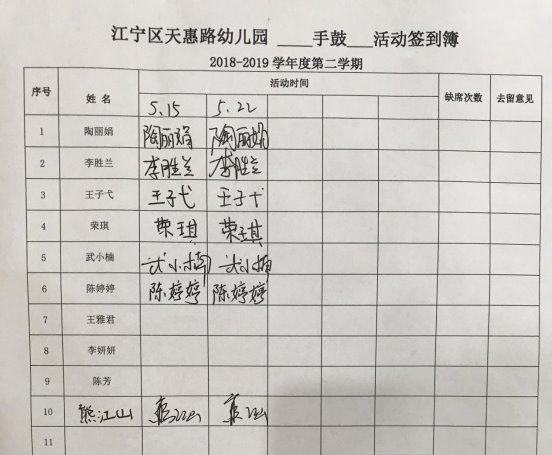 江宁区天惠路幼儿园 ____手鼓___活动签到簿
2018-2019 学年度第二学期
序号 姓 名 活动时间 缺席次数 去留意见
5.15 5.22
1 陶丽娟 陶丽娟 陶丽娟
2 李胜兰 李胜兰 李胜兰
3 王子弋 王子弋 王子弋
4 荣琪 荣琪 荣琪
5 武小楠 武小楠 武小楠
6 陈婷婷 陈婷婷 陈婷婷
7 王雅君
8 李妍妍
9 陈芳
10 熊江山
11